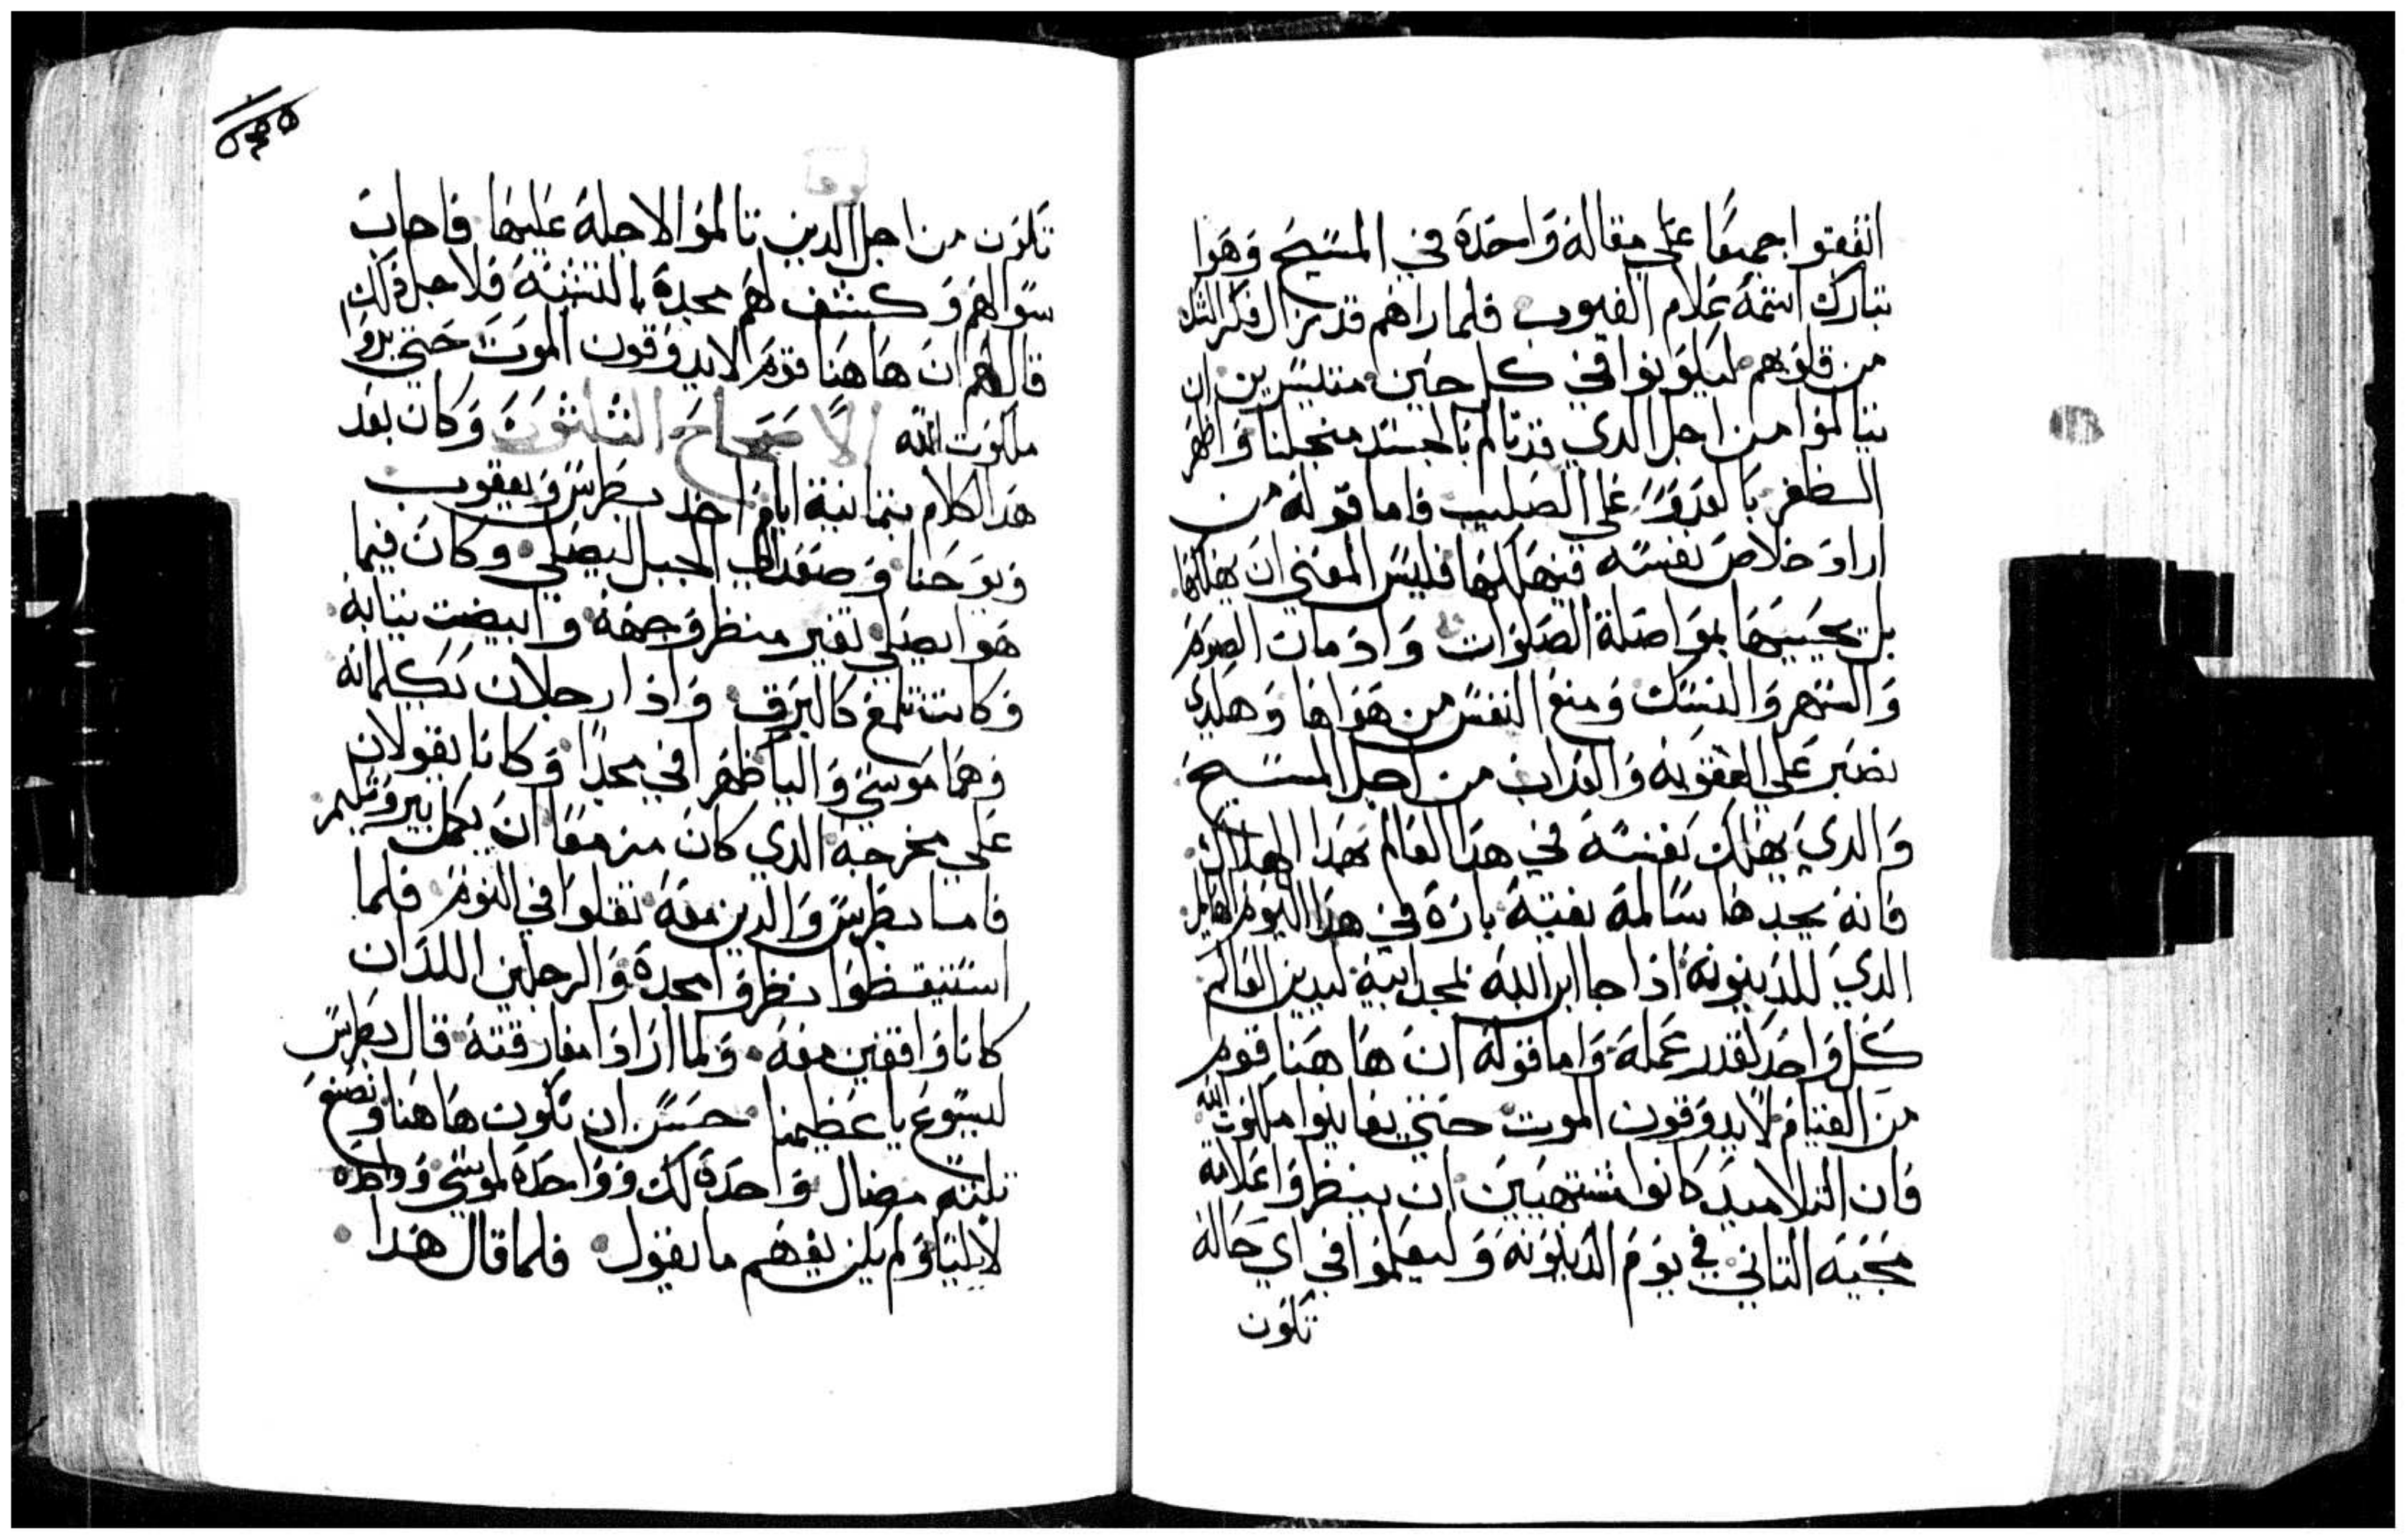 اتفقوا جميعا علي مقالة واحدة في المسيح وهوا
تبارك اسمه علام الغيوب فلما راهم قد زال فكر الشك
من قلوبهم ليكونوا في كل حين متيسرين ان
يتالموا من اجل الدي قد تالم بالجسد منجلنا واظهر
الظفر بالعدو علي الصليب فاما قوله من
اراد خلاص نفسه فيهلكها فليس المعني ان يهلكها
بل يحييها بمواصلة الصلوات وادمان الصوم
والسهر والنسك ومنع النفس من هواها وهكدي
يصبر علي العقوبه والعداب من اجل المسيح
والدي يهلك نفسه في هدا العالم بهدا الهلاك
فانه يجدها سالمة نقية بارة في هدا اليوم الهايل
الدي للدينونه اذا جا ابن الله بمجد ابيه ليدين العالم
كل واحد لقدر عمله واما قوله ان هاهنا قوم
من القيام لايدوقون الموت حتي يعاينوا ملكوت الله
فان التلاميد كانوا مشتهيين ان ينظروا علامة
مجيه التاني في يوم الدينونه وليعلموا في اي حالة
تكون
تكون من اجل الدين تالموا لاجله عليها فاجاب
سوالهم وكشف لهم مجده بالتشبه فلاجل ذلك
قال لهم ان هاهنا قوم لايدوقون الموت حتي يروا
ملكوت الله الاصحاح الثلثون وكان بعد
هدا الكلام بتمانية ايام اخد بطرس ويعقوب
ويوحنا وصعد الي الجبل ليصلي وكان فيما
هوا يصلي تغير منظر وجهه وابيضت تيابه
وكانت تلمع كالبرق واذا رجلان يكلمانه
وهما موسي واليا ظهرا في مجدا وكانا يقولان
علي مخرجه الدي كان مزمعا ان يكمل بيروشليم
فاما بطرس والدين معه تقلوا في النوم فلما
استيقظوا نظروا مجده والرجلين اللدان
كانا واقفين معه ولما ارادا مفارقته قال بطرس
ليسوع يا عظيمنا حسن ان نكون هاهنا ونصنع
تلته مضال واحدة لك وواحدة لموسي وواحدة
لايليا ولم يكن يفهم ما يقول فلما قال هدا